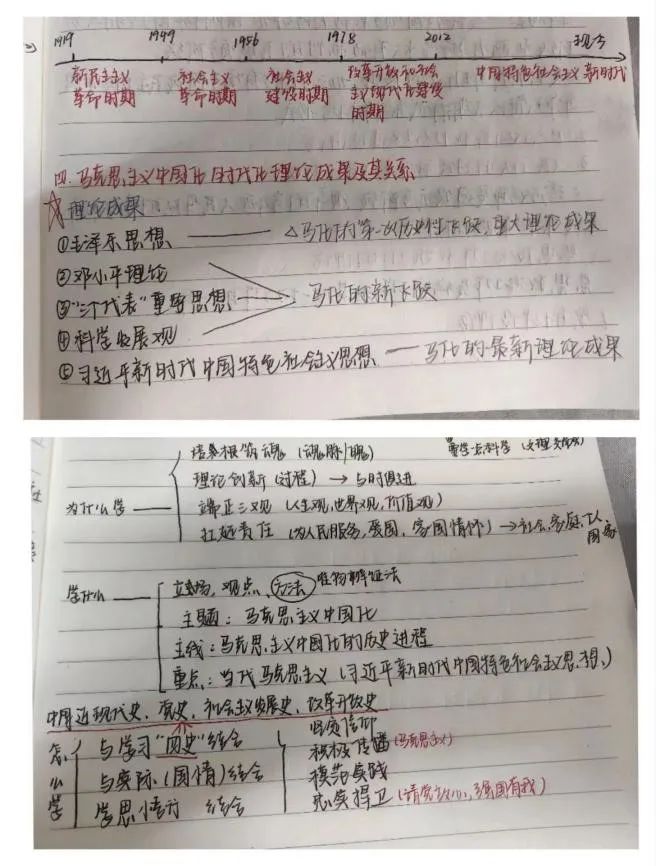 1919 1949 1956 1978 2012 现今
新民主主义 社会主义 社会主义 改革开放和社会 中国特色社会主义新时代
革命时期 革命时期 建设时期 主义现代化建设
时期
四.马克思主义中国化时代化理论成果及其关系
☆理论成果
①毛泽东思想 —— △马化的第一次历史性飞跃,重大理论成果
②邓小平理论
③"三个代表"重要思想 马化的新飞跃
④科学发展观
⑤习近平新时代中国特色社会主义思想 — 马化的最新理论成果
培基根筑魂(魂脉/魄)
理论创新(过程)→与时俱进
为什么学 — 端正三观(人生观,世界观,价值观)
扛起责任(为人民服务,强国,家国情怀)→社会,家庭,个人,
国家
学什么 — 立场,观点,方法 唯物辩证法
主题:马克思主义中国化
主线:马克思主义中国化的历史进程
重点:当代马克思主义(习近平新时代中国特色社会主义思想)
中国近现代史,党史,社会主义发展史,改革开放史
怎么学 与学习"历史"结合 坚定信仰
与实际(国情)结合 积极传播(马克思主义)
学思悟行 结合 模范实践
忠实捍卫(请党放心,强国有我)